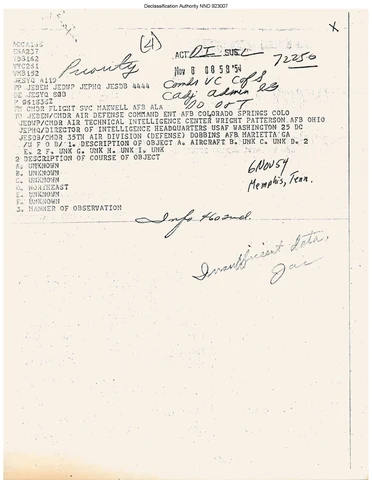 Declassification Authority NND 923007
X
(4)
ACT DI SUS
72250
Nov 8 08 58 '54
Priority
ENA237
YDB162
VTC261
VMB152
JESYQ A119
PP JEDEN JEDWP JEPHQ JESDB 4444
DE JESYQ 80B
P 061836Z
FM CMDR FLIGHT SVC MAXWELL AFB ALA
TO JEDEN/CMDR AIR DEFENSE COMMAND ENT AFB COLORADO SPRINGS COLO
JEDWP/CMDR AIR TECHNICAL INTELLIGENCE CENTER WRIGHT PATTERSON AFB OHIO
JEPHQ/DIRECTOR OF INTELLIGENCE HEADQUARTERS USAF WASHINGTON 25 DC
JESDB/CMDR 35TH AIR DIVISION (DEFENSE) DOBBINS AFB MARIETTA GA
/U F O B/ 1. DESCRIPTION OF OBJECT A. AIRCRAFT B. UNK C. UNK D. 2
E. 2 F. UNK G. UNK H. UNK I. UNK
2 DESCRIPTION OF COURSE OF OBJECT
A. UNKNOWN
B. UNKNOWN
C. UNKNOWN
D. NORTHEAST
E. UNKNOWN
F. UNKNOWN
3. MANNER OF OBSERVATION
Comdr VC CofS
Cadj Admin
DO OOT
6 Nov 54
Memphis, Tenn.
Info
Insufficient data.